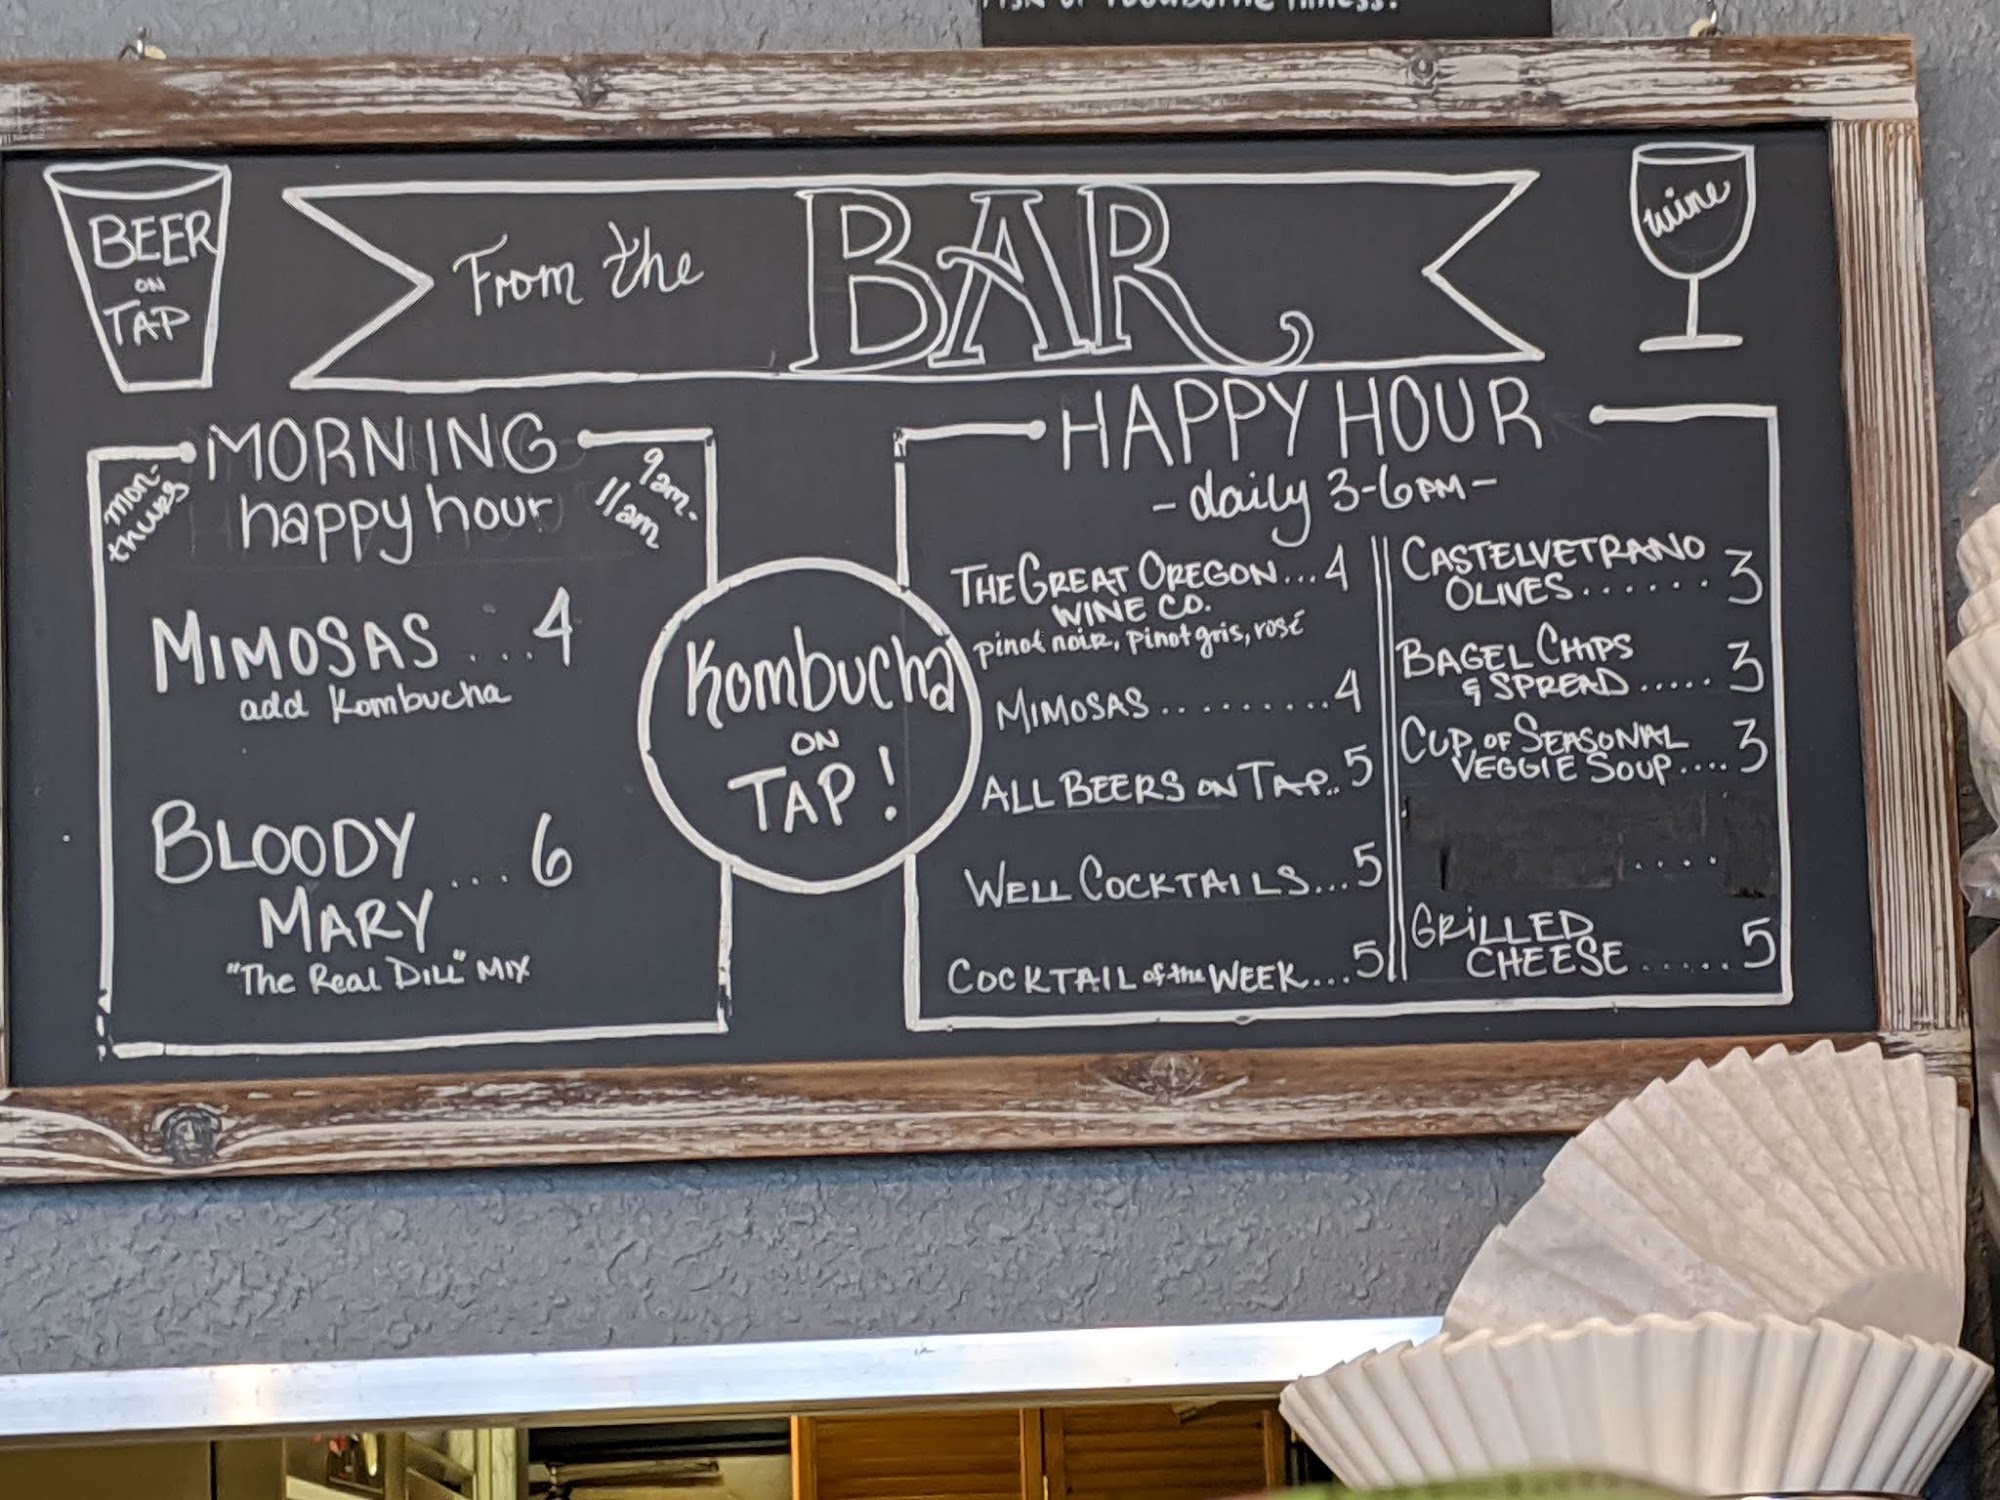 BEER
ON
TAP
From the BAR
wine
MORNING
happy hour
mon-
thurs
9am-
11am
MIMOSAS ...4
add Kombucha
BLOODY ...6
MARY
"The Real DILL" MIX
Kombucha
ON
TAP!
HAPPY HOUR
-daily 3-6PM-
THE GREAT OREGON...4
WINE CO.
pinot noir, pinot gris, rosé
MIMOSAS.........4
ALL BEERS ON TAP..5
WELL COCKTAILS...5
COCKTAIL of the WEEK...5
CASTELVETRANO
OLIVES......3
BAGEL CHIPS
& SPREAD.....3
CUP OF SEASONAL
VEGGIE SOUP....3
....
GRILLED
CHEESE.....5